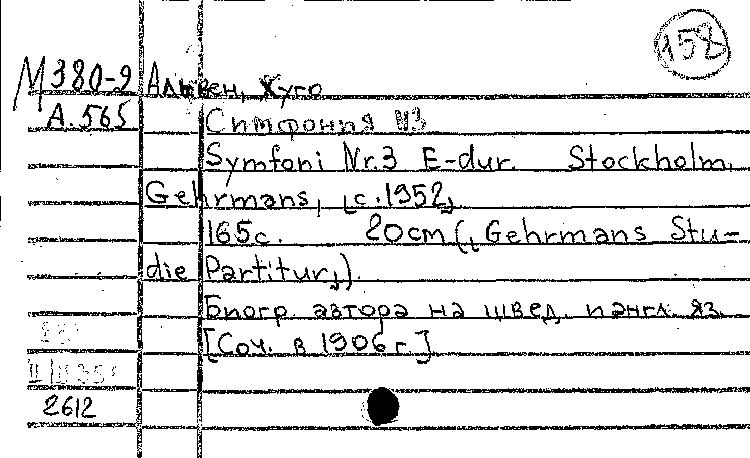 158
М380-9 Альвен, Хуго
А.565 Симфония №3
Symfoni Nr.3 E-dur. Stockholm,
Gehrmans, [c.1952]
165с. 20cm([Gehrmans Stu-
die Partitur]).
Биогр. автора на швед. и англ. яз.
[Соч. в 1906 г.]
2612